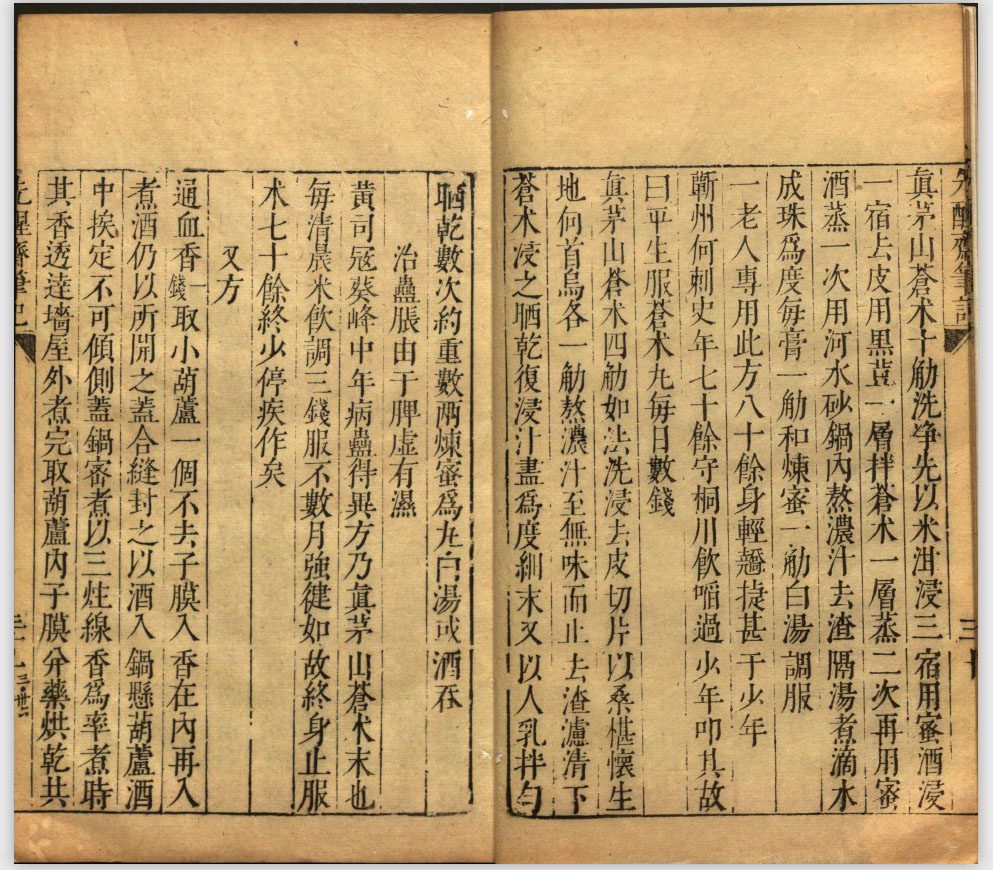 先醒齋筆記
眞茅山蒼术十觔洗净先以米泔浸三宿用蜜酒浸
一宿去皮用黑荳一層拌蒼术一層蒸二次再用蜜
酒蒸一次用河水砂鍋內熬濃汁去渣隔湯煮滴水
成珠爲度每膏一觔和煉蜜一觔白湯調服
一老人專用此方八十餘身輕趫捷甚于少年
蘄州何刺史年七十餘守桐川飲啗過少年叩其故
曰平生服蒼术丸每日數錢
眞茅山蒼术四觔如法洗浸去皮切片以桑椹懷生
地何首烏各一觔熬濃汁至無味而止去渣濾清下
蒼术浸之晒乾復浸汁盡爲度細末又以人乳拌勻
晒乾數次約重數兩煉蜜爲丸白湯或酒吞
治蠱脹由于脾虛有濕
黃司冦葵峰中年病蠱得異方乃眞茅山蒼术末也
每清晨米飲調三錢服不數月強健如故終身止服
术七十餘終少停疾作矣
又方
通血香一錢取小葫蘆一個不去子膜入香在內再入
煮酒仍以所開之蓋合縫封之以酒入鍋懸葫蘆酒
中挨定不可傾側蓋鍋密煮以三炷線香爲率煮時
其香透達墻屋外煮完取葫蘆內子膜分藥烘乾共
先醒齋筆記